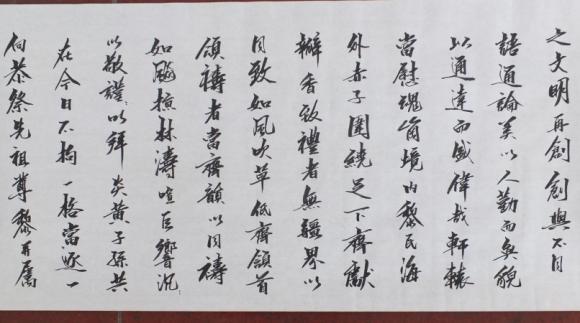 之文明再創創與不同
語通論美以人勤而奐貌
以通達而盛偉哉軒轅
當慰魂箇境內黎民海
外赤子圍繞足下齊獻
瓣香致禮者無疆界以
同致如風吹草低齊頷首
頌禱者當齊韻以同禱
如飈掠林濤喧巨響汎
以敬謹以拜炎黃子孫共
在今日不拘一格當逐一
向恭祭先祖尊黎再屬